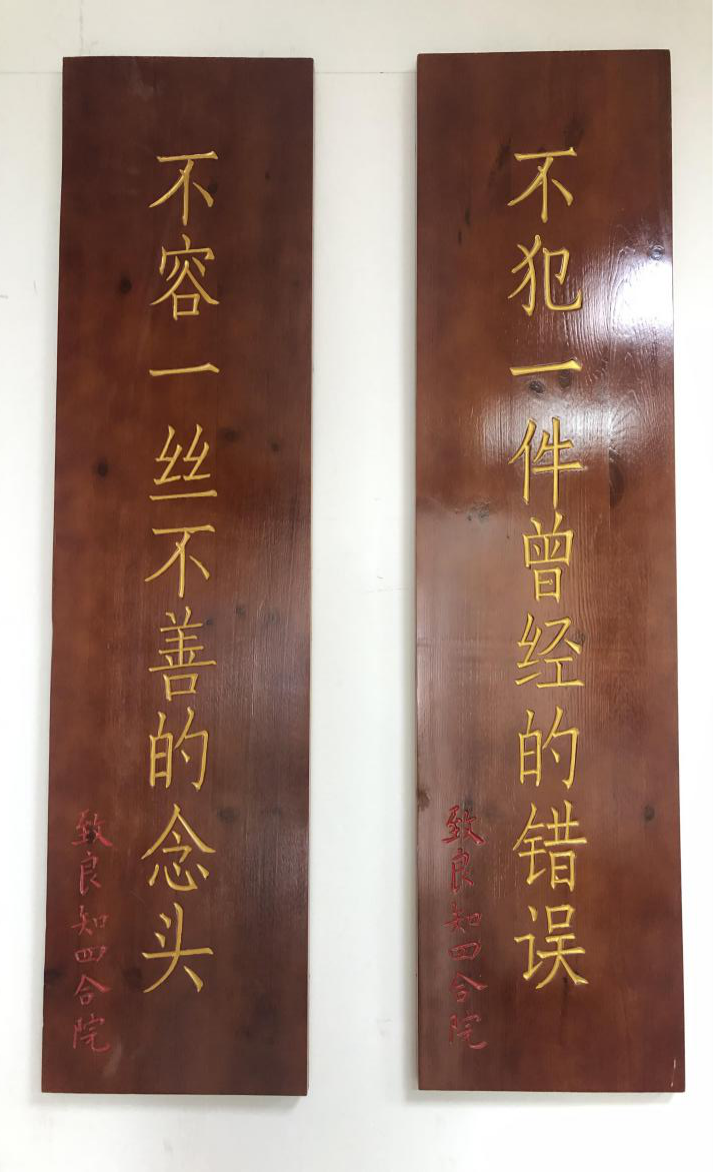 不犯一件曾经的错误
致良知四合院
不容一丝不善的念头
致良知四合院